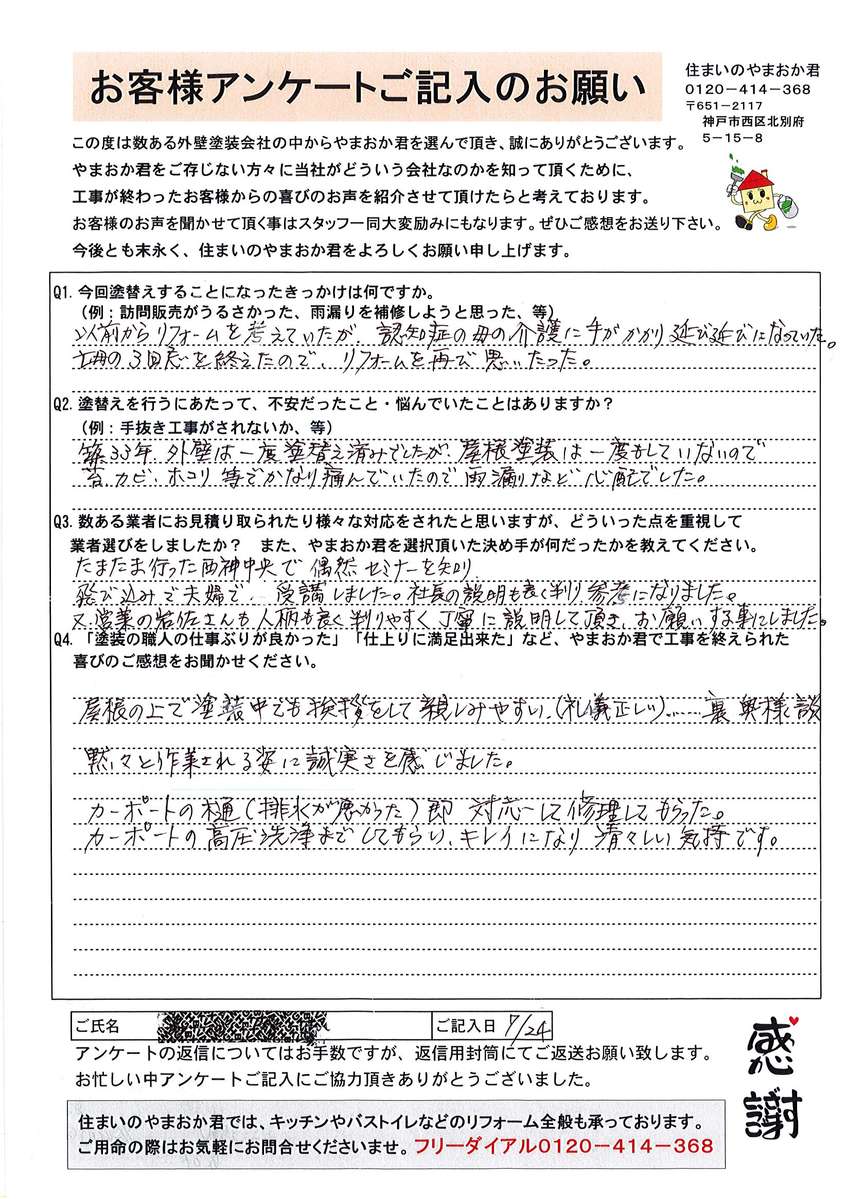 お客様アンケートご記入のお願い
住まいのやまおか君
0120-414-368
〒651-2117
神戸市西区北別府
5-15-8
この度は数ある外壁塗装会社の中からやまおか君を選んで頂き、誠にありがとうございます。
やまおか君をご存じない方々に当社がどういう会社なのかを知って頂くために、
工事が終わったお客様からの喜びのお声を紹介させて頂けたらと考えております。
お客様のお声を聞かせて頂く事はスタッフ一同大変励みにもなります。ぜひご感想をお送り下さい。
今後とも末永く、住まいのやまおか君をよろしくお願い申し上げます。
Q1. 今回塗替えすることになったきっかけは何ですか。
(例:訪問販売がうるさかった、雨漏りを補修しようと思った、等)
以前からリフォームを考えていたが、認知症の母の介護に手がかかり延び延びになっていた。
母の3回忌を終えたので、リフォームを再び思いたった。
Q2. 塗替えを行うにあたって、不安だったこと・悩んでいたことはありますか?
(例:手抜き工事がされないか、等)
築33年、外壁は一度塗替え済みでしたが、屋根塗装は一度もしていないので
苔、カビ、ホコリ等でかなり痛んでいたので雨漏りなど心配でした。
Q3. 数ある業者にお見積り取られたり様々な対応をされたと思いますが、どういった点を重視して
業者選びをしましたか? また、やまおか君を選択頂いた決め手が何だったかを教えてください。
たまたま行った西神中央で偶然セミナーを知り
飛び込みで夫婦で、受講しました。社長の説明も良く判り参考になりました。
又、営業の岩佐さんも人柄も良く判りやすく丁寧に説明して頂き、お願いする事にしました。
Q4. 「塗装の職人の仕事ぶりが良かった」「仕上りに満足出来た」など、やまおか君で工事を終えられた
喜びのご感想をお聞かせください。
屋根の上で塗装中でも挨拶をして親しみやすい、(礼儀正しい)……裏奥様談
黙々と作業される姿に誠実さを感じました。
カーポートの樋(排水が悪かった)即 対応して修理してもらった。
カーポートの高圧洗浄までしてもらい、キレイになり 清々しい気持です。
ご氏名
ご記入日 7/24
アンケートの返信についてはお手数ですが、返信用封筒にてご返送お願い致します。
お忙しい中アンケートご記入にご協力頂きありがとうございました。
感謝
住まいのやまおか君では、キッチンやバストイレなどのリフォーム全般も承っております。
ご用命の際はお気軽にお問合せくださいませ。フリーダイアル0120-414-368